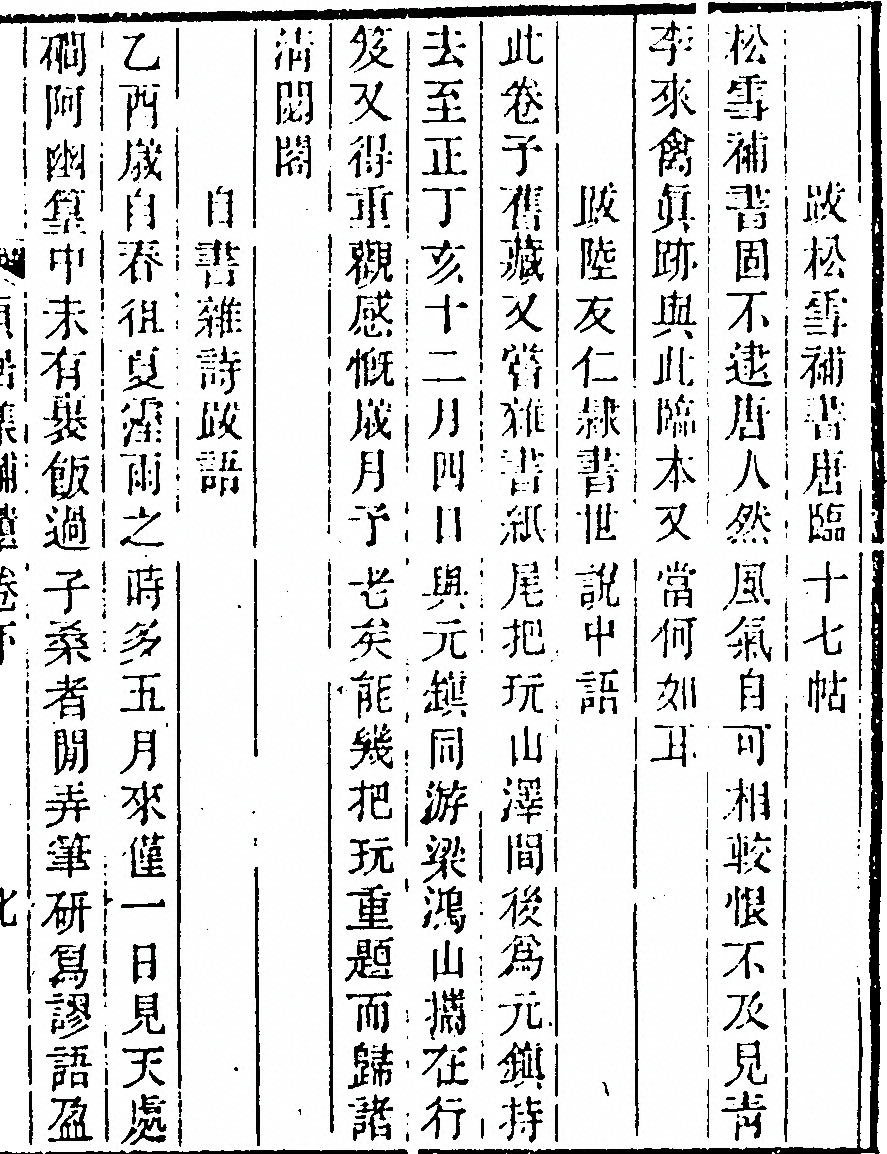 跋松雪補書唐臨十七帖
松雪補書固不逮唐人然風氣自可相較恨不及見青
李來禽眞跡與此臨本又當何如耳
跋陸友仁隸書世說中語
此卷予舊藏又嘗雜書紙尾把玩山澤間後爲元鎭持
去至正丁亥十二月四日與元鎭同游梁鴻山攜在行
笈又得重觀感慨歲月予老矣能幾把玩重題而歸諸
淸閟閣
自書雜詩跋語
乙酉歲自春徂夏霪雨之時多五月來僅一日見天處
磵阿幽篁中未有裹飯過子桑者閒弄筆研寫謬語盈
居集補遺卷下